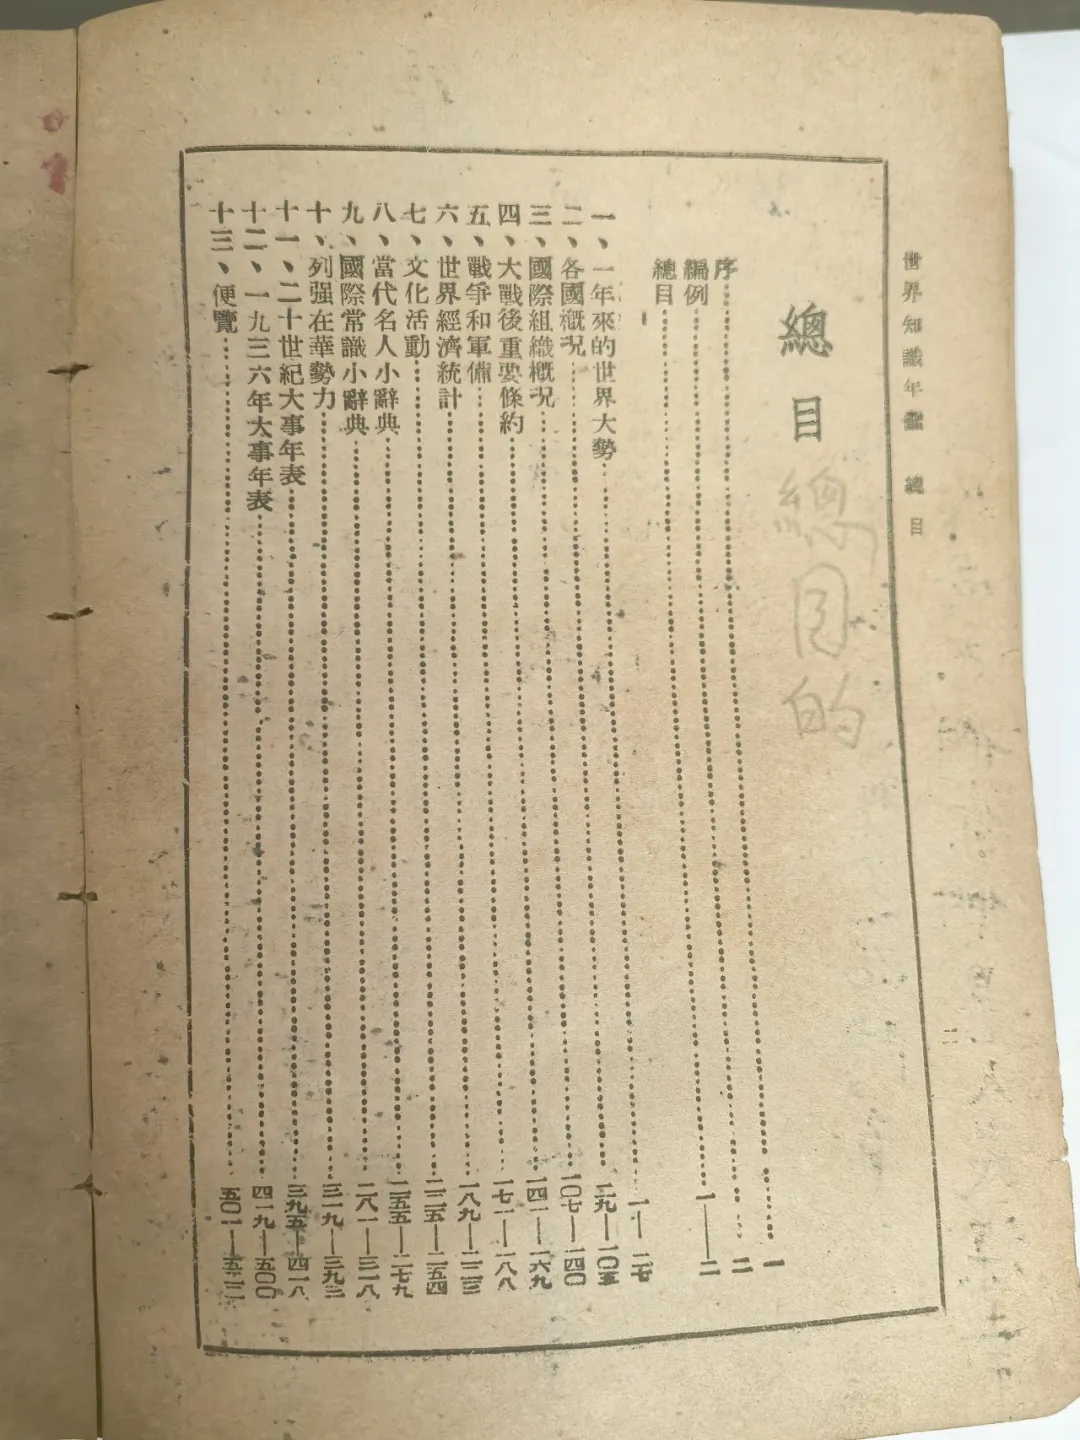 世界知識年鑑　總目　二
總目
總目的
序……一
編例……二
總目……一——二
一、一年來的世界大勢……一——二七
二、各國概況……二九——一〇五
三、國際組織概況……一〇七——一四〇
四、大戰後重要條約……一四一——一六九
五、戰爭和軍備……一七一——一八八
六、世界經濟統計……一八九——二二三
七、文化活動……二二五——二五四
八、當代名人小辭典……二五五——二七九
九、國際常識小辭典……二八一——三一八
十、列强在華勢力……三一九——三九三
十一、二十世紀大事年表……三九五——四一八
十二、一九三六年大事年表……四一九——五〇〇
十三、便覽……五〇一——五二二